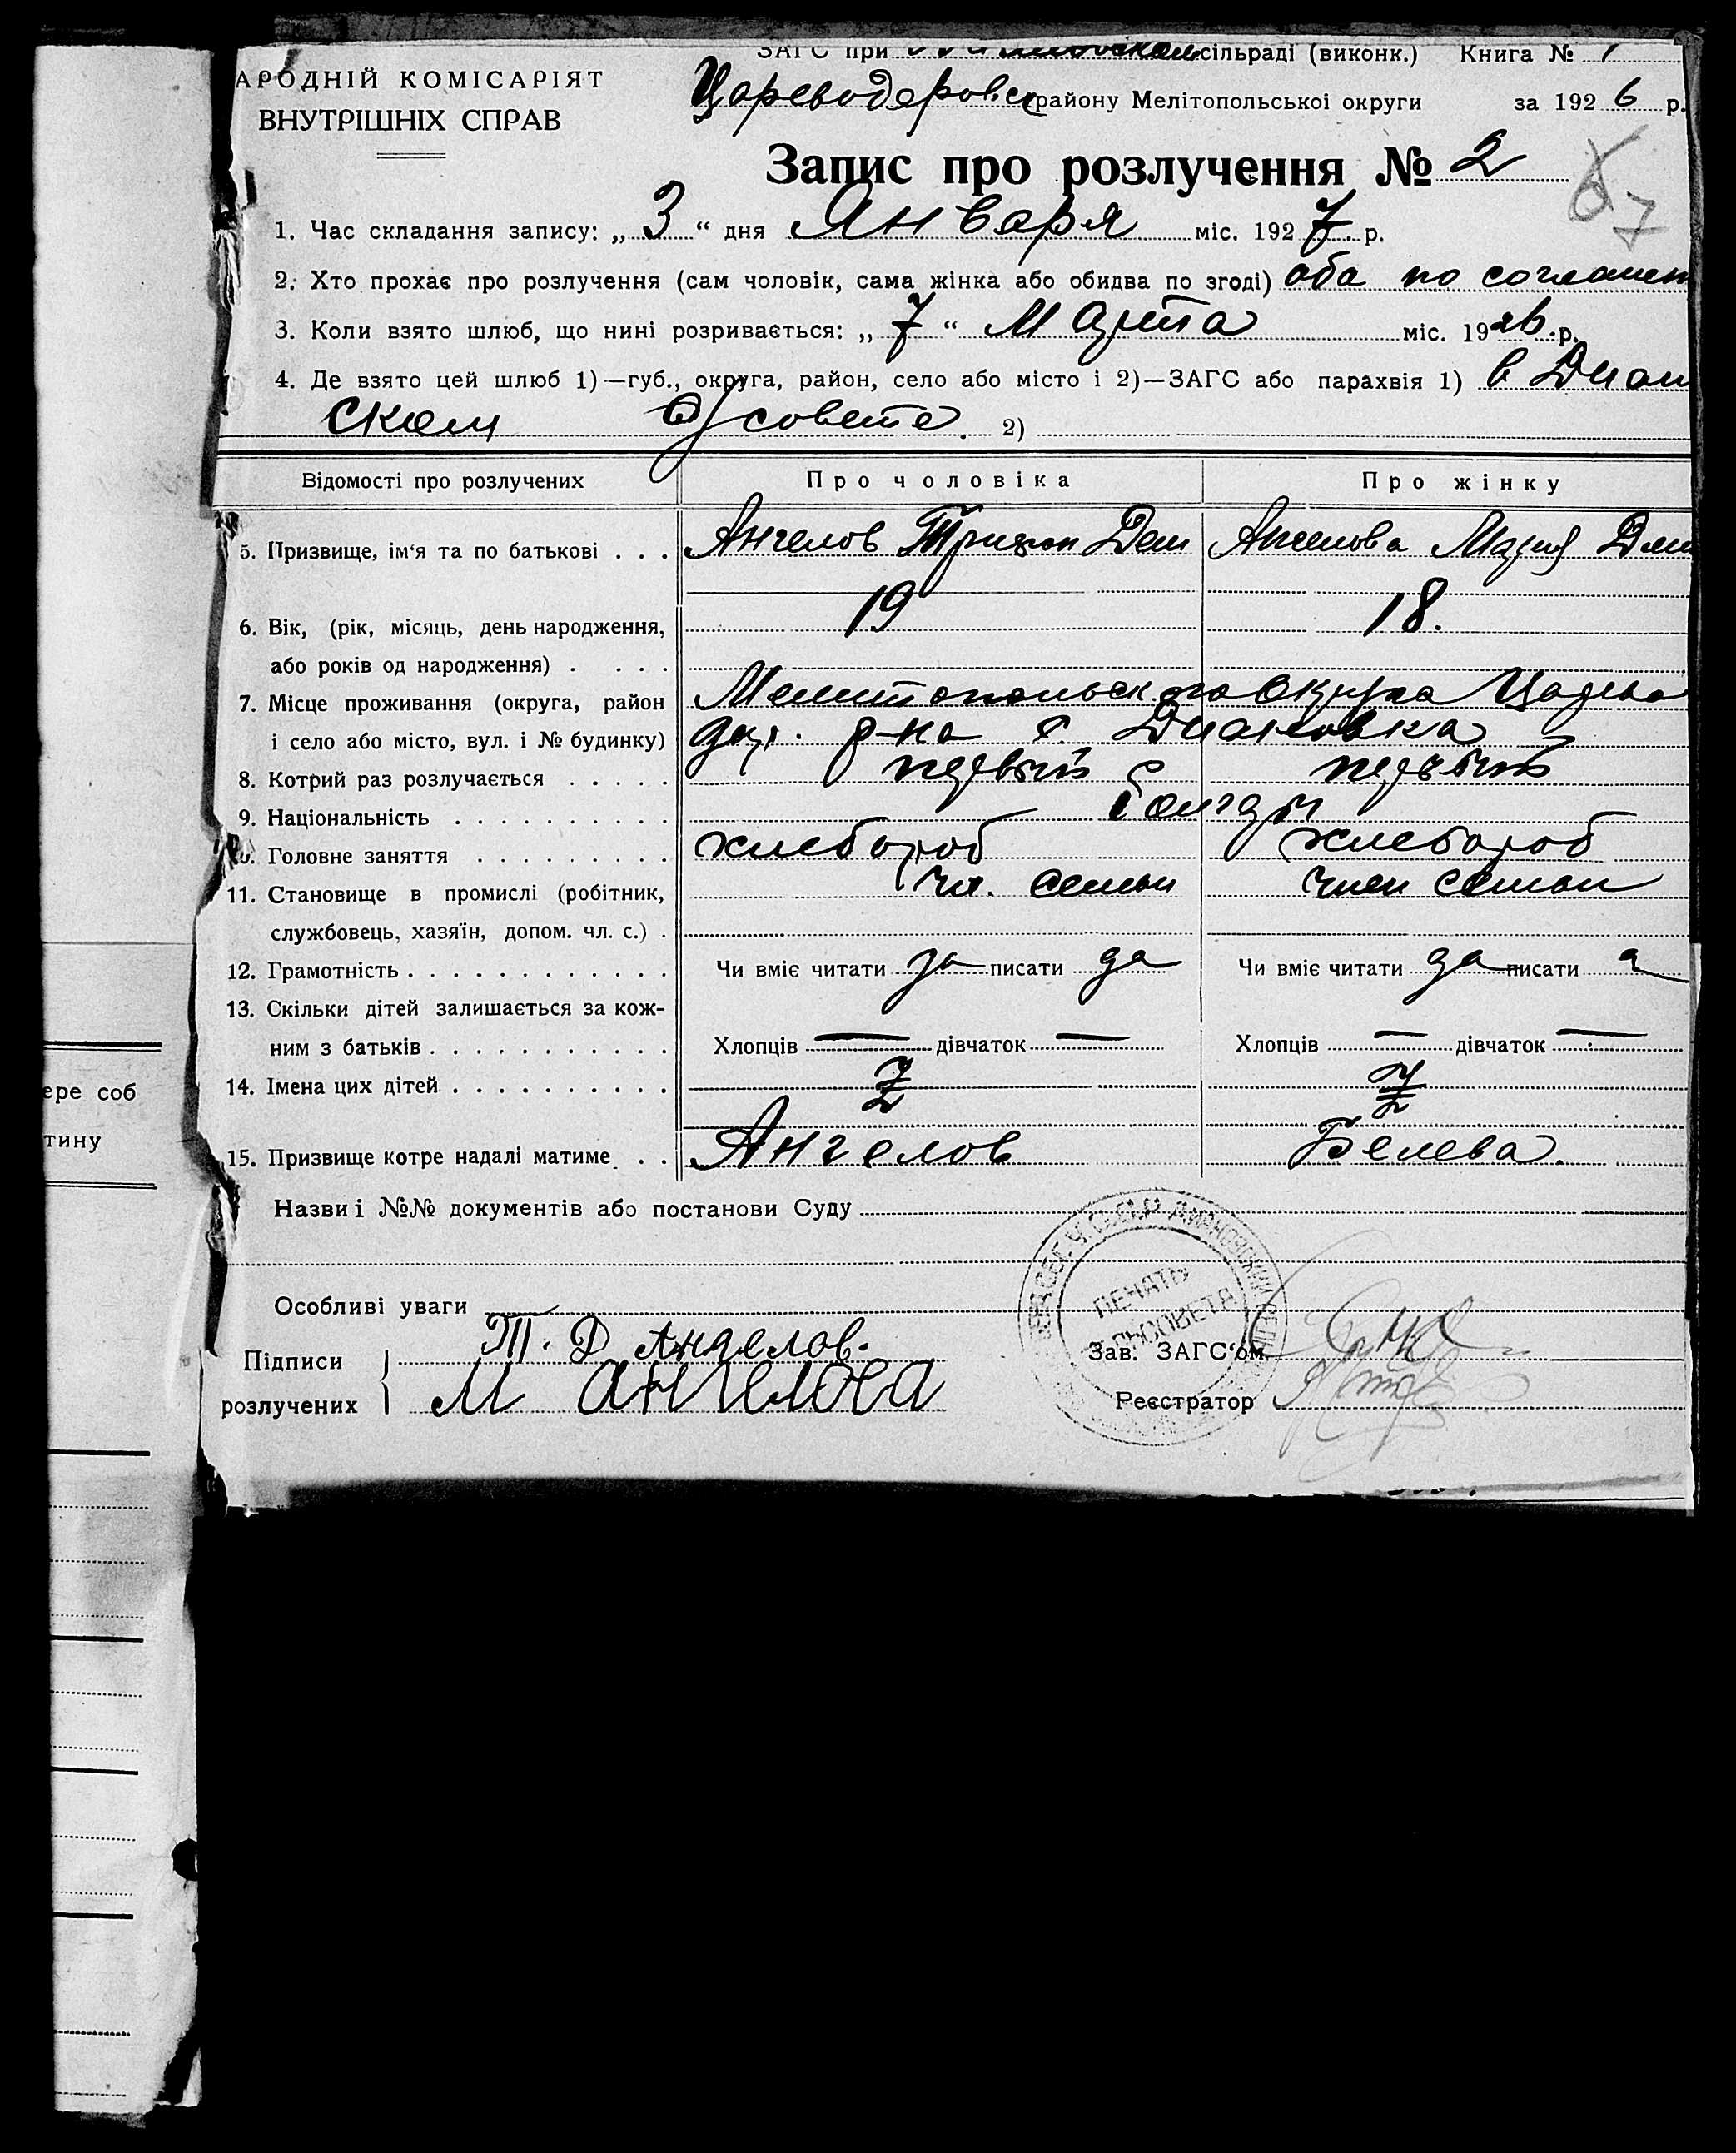 ЗАГС при сільраді (виконк.) Книга №
АРОДНІЙ КОМІСАРІЯТ
ВНУТРІШНІХ СПРАВ
Цареводаровск району Мелітопольської округи за 1926 р.
Запис про розлучення № 2
7
1. Час складання запису: „3“ дня Января міс. 1927 р.
2. Хто прохає про розлучення (сам чоловік, сама жінка або обидва по згоді) оба по соглашен
3. Коли взято шлюб, що нині розривається: „7“ Марта міс. 1926 р.
4. Де взято цей шлюб 1)—губ., округа, район, село або місто і 2)—ЗАГС або парахвія 1) в Диан
ском с/совете. 2)
Відомості про розлучених Про чоловіка Про жінку
5. Призвище, ім‘я та по батькові . . . Ангелов Трифон Дем Ангелова Мария Дми
6. Вік, (рік, місяць, день народження, 19 18.
або років од народження) . . . .
7. Місце проживання (округа, район Мелитопольского Округа Царево
і село або місто, вул. і № будинку) дар. р-на с. Диановка
8. Котрий раз розлучається . . . . . первый первый
9. Національність . . . . . . . . . . болгары
10. Головне заняття . . . . . . . . . хлебороб хлебороб
11. Становище в промислі (робітник, чл. семьи член семьи
службовець, хазяїн, допом. чл. с.) .
12. Грамотність . . . . . . . . . . . . Чи вміє читати да писати да Чи вміє читати да писати
13. Скільки дітей залишається за кож-
ним з батьків . . . . . . . . . . . Хлопців — дівчаток — Хлопців — дівчаток —
14. Імена цих дітей . . . . . . . . . . Z Z
15. Призвище котре надалі матиме . . Ангелов Белева.
Назви і №№ документів або постанови Суду
Особливі уваги
ПЕЧАТЬ
СЕЛЬСОВЕТА
Підписи Т. Д Ангелов. Зав. ЗАГС‘ом
розлучених М Ангелова Реєстратор
ере соб
тину